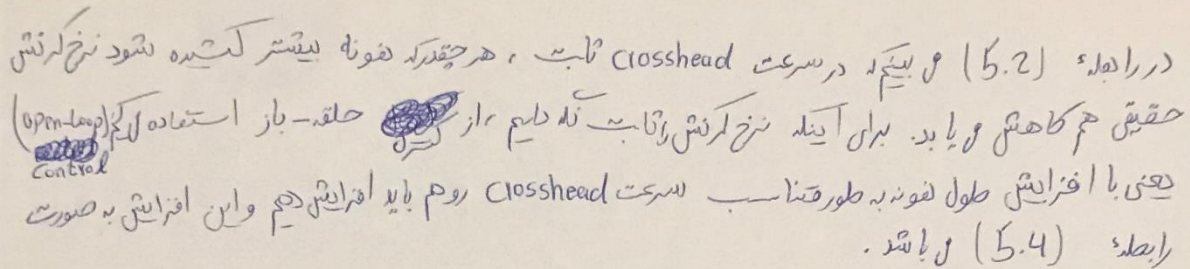 در رابطهٔ (5.2) می بینیم که در سرعت crosshead ثابت ، هر چقدر که نمونه بیشتر کشیده شود نرخ کرنش
حقیقی هم کاهش می یابد. برای اینکه نرخ کرنش را ثابت نگه داریم ، از کنترل حلقه - باز استفاده می کنیم (open-loop control)
یعنی با افزایش طول نمونه به طور متناسب سرعت crosshead رو هم باید افزایش دهیم و این افزایش به صورت
رابطهٔ (5.4) می باشد .